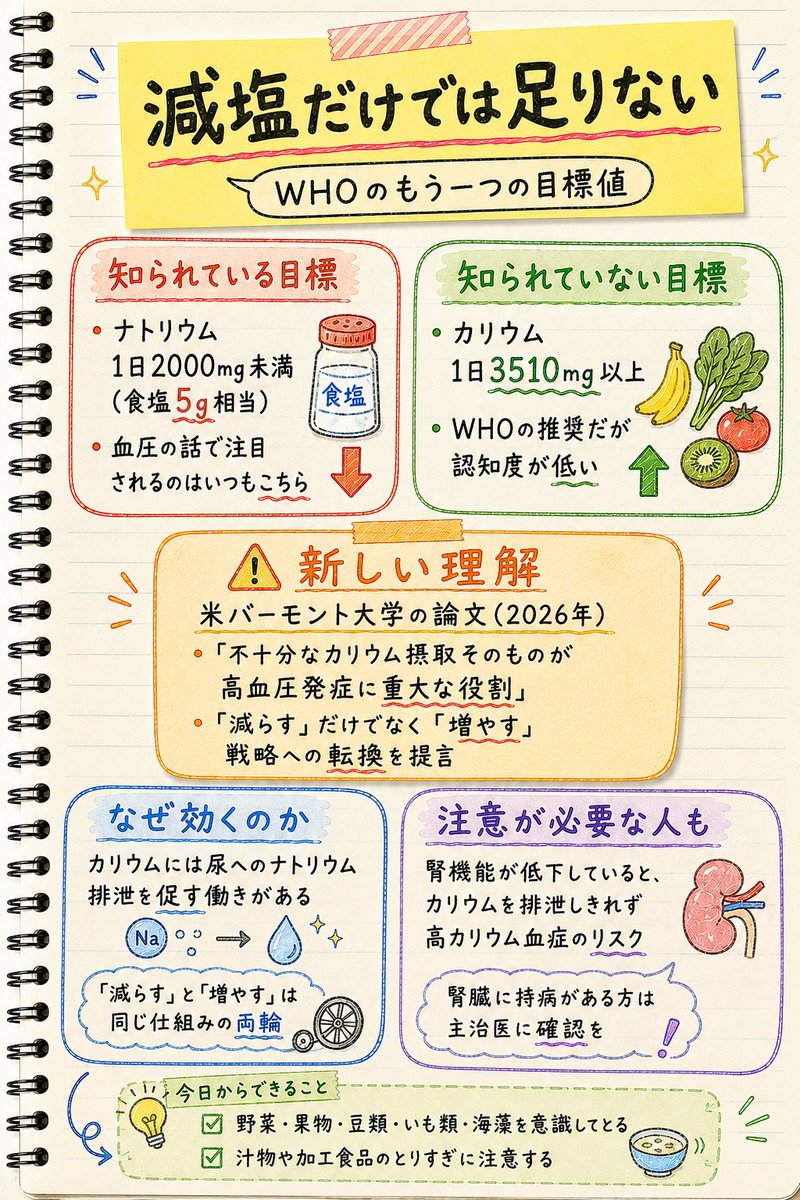 減塩だけでは足りない
WHOのもう一つの目標値
知られている目標
・ナトリウム
1日2000mg未満
(食塩5g相当)
・血圧の話で注目
されるのはいつもこちら
食塩
知られていない目標
・カリウム
1日3510mg以上
・WHOの推奨だが
認知度が低い
新しい理解
米バーモント大学の論文(2026年)
・「不十分なカリウム摂取そのものが
高血圧発症に重大な役割」
・「減らす」だけでなく「増やす」
戦略への転換を提言
なぜ効くのか
カリウムには尿へのナトリウム
排泄を促す働きがある
Na
「減らす」と「増やす」は
同じ仕組みの両輪
注意が必要な人も
腎機能が低下していると、
カリウムを排泄しきれず
高カリウム血症のリスク
腎臓に持病がある方は
主治医に確認を
今日からできること
野菜・果物・豆類・いも類・海藻を意識してとる
汁物や加工食品のとりすぎに注意する